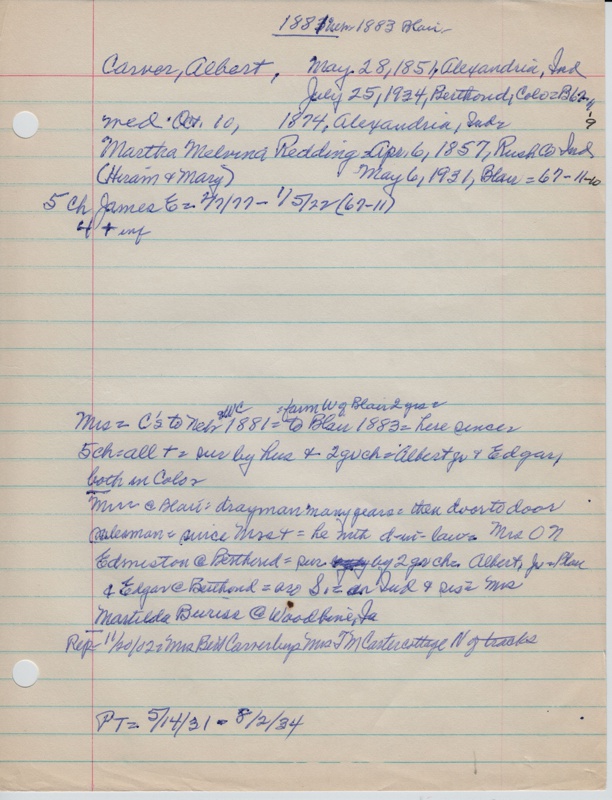 1881 Neb 1883 Blair
Carver, Albert, May 28, 1851, Alexandria, Ind
July 25, 1934, Berthoud, Colo = B62-11-9
med Oct. 10, 1874, Alexandria, Ind =
Martha Melvina Redding = Apr. 6, 1857, Rush Co Ind
(Hiram & Mary) May 6, 1931, Blair = 67-11-10
5 Ch James E = 2/7/77 - 1/5/22 (67-11)
4 + inf
Mrs = C's to Neb & WC 1881 = farm W of Blair 2 yrs = to Blair 1883 = here since =
5 ch = all + = sur by hus & 2 gr ch = Albert Jr & Edgar,
both in Colo =
Mr = C Blair = drayman many years = then door to door
salesman = since Mrs + = he with d-in-law = Mrs O N
Edmiston @ Berthoud = sur by 2 gr ch = Albert, Jr =
& Edgar @ Berthoud = Ind & sis = Mrs
Martilda @ Woodbine, Ia
Rep 11/20/02 = Mrs Carver buys Mrs T M Carter cottage N of tracks
PT = 5/14/31 - 8/2/34